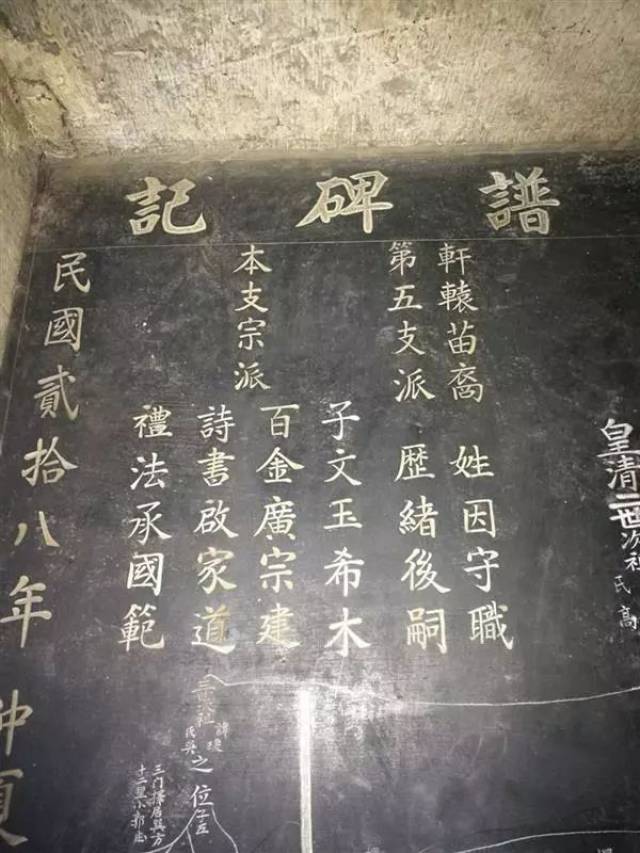 譜碑記
皇清二世次祖
軒轅苗裔 姓因守職
第五支派 歴緒後嗣
本支宗派
子文玉希木
百金廣宗建
詩書啟家道
禮法承國範
民國貳拾八年 仲夏
之位
子五